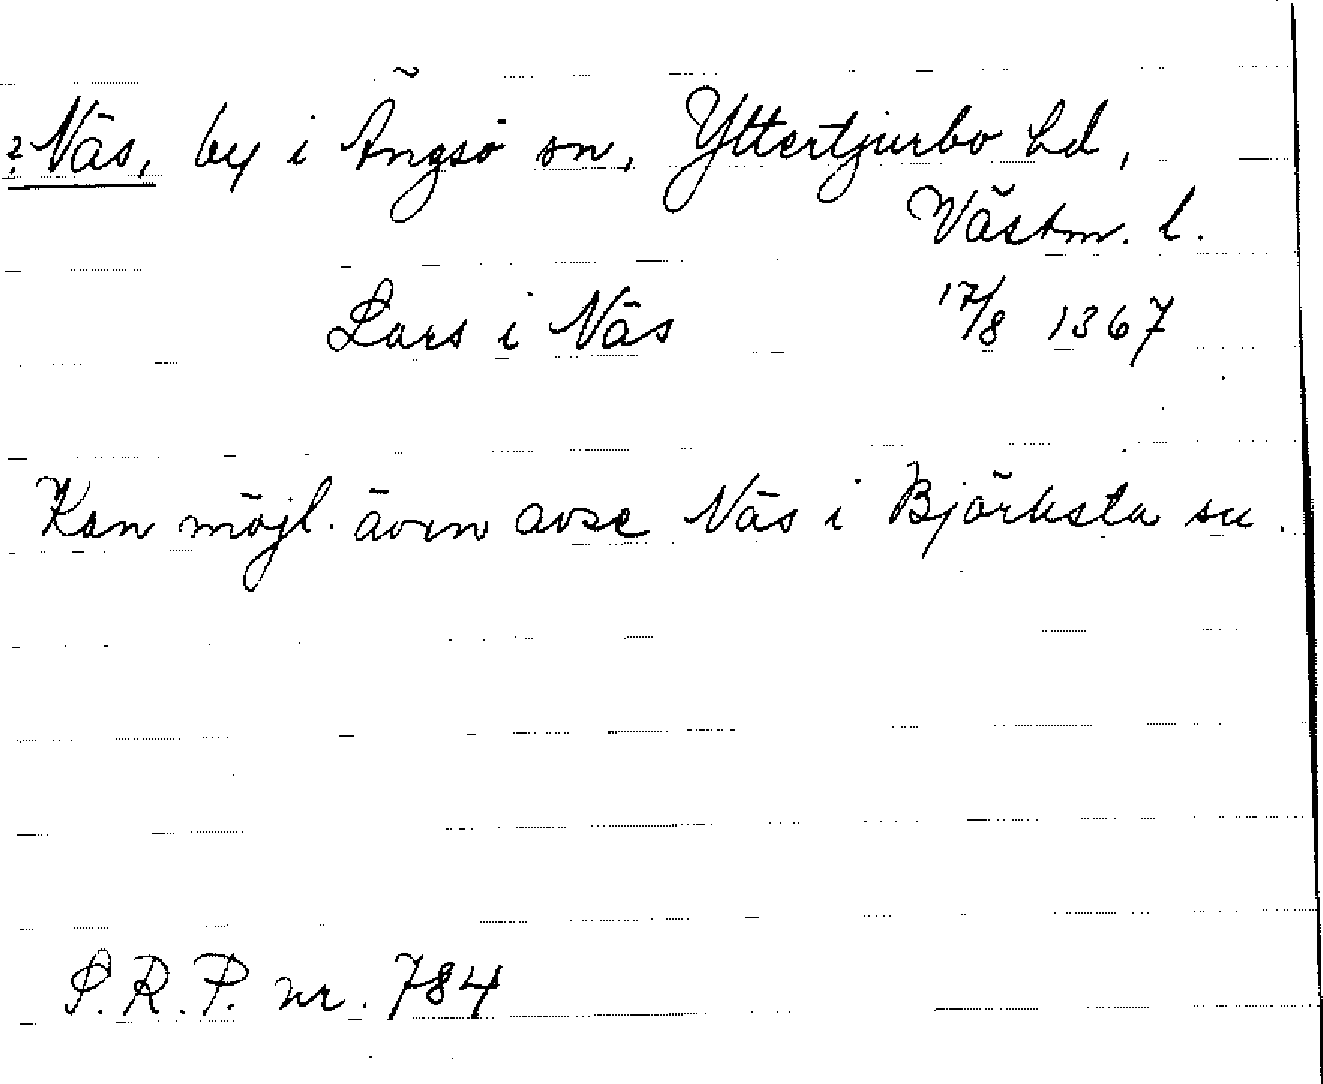 ? Näs, by i Ängsö sn, Yttertjurbo hd,
Västm. l.
Lars i Näs 17/8 1367
Kan möjl. även avse Näs i Björksta sn.
S.R.P. nr. 784